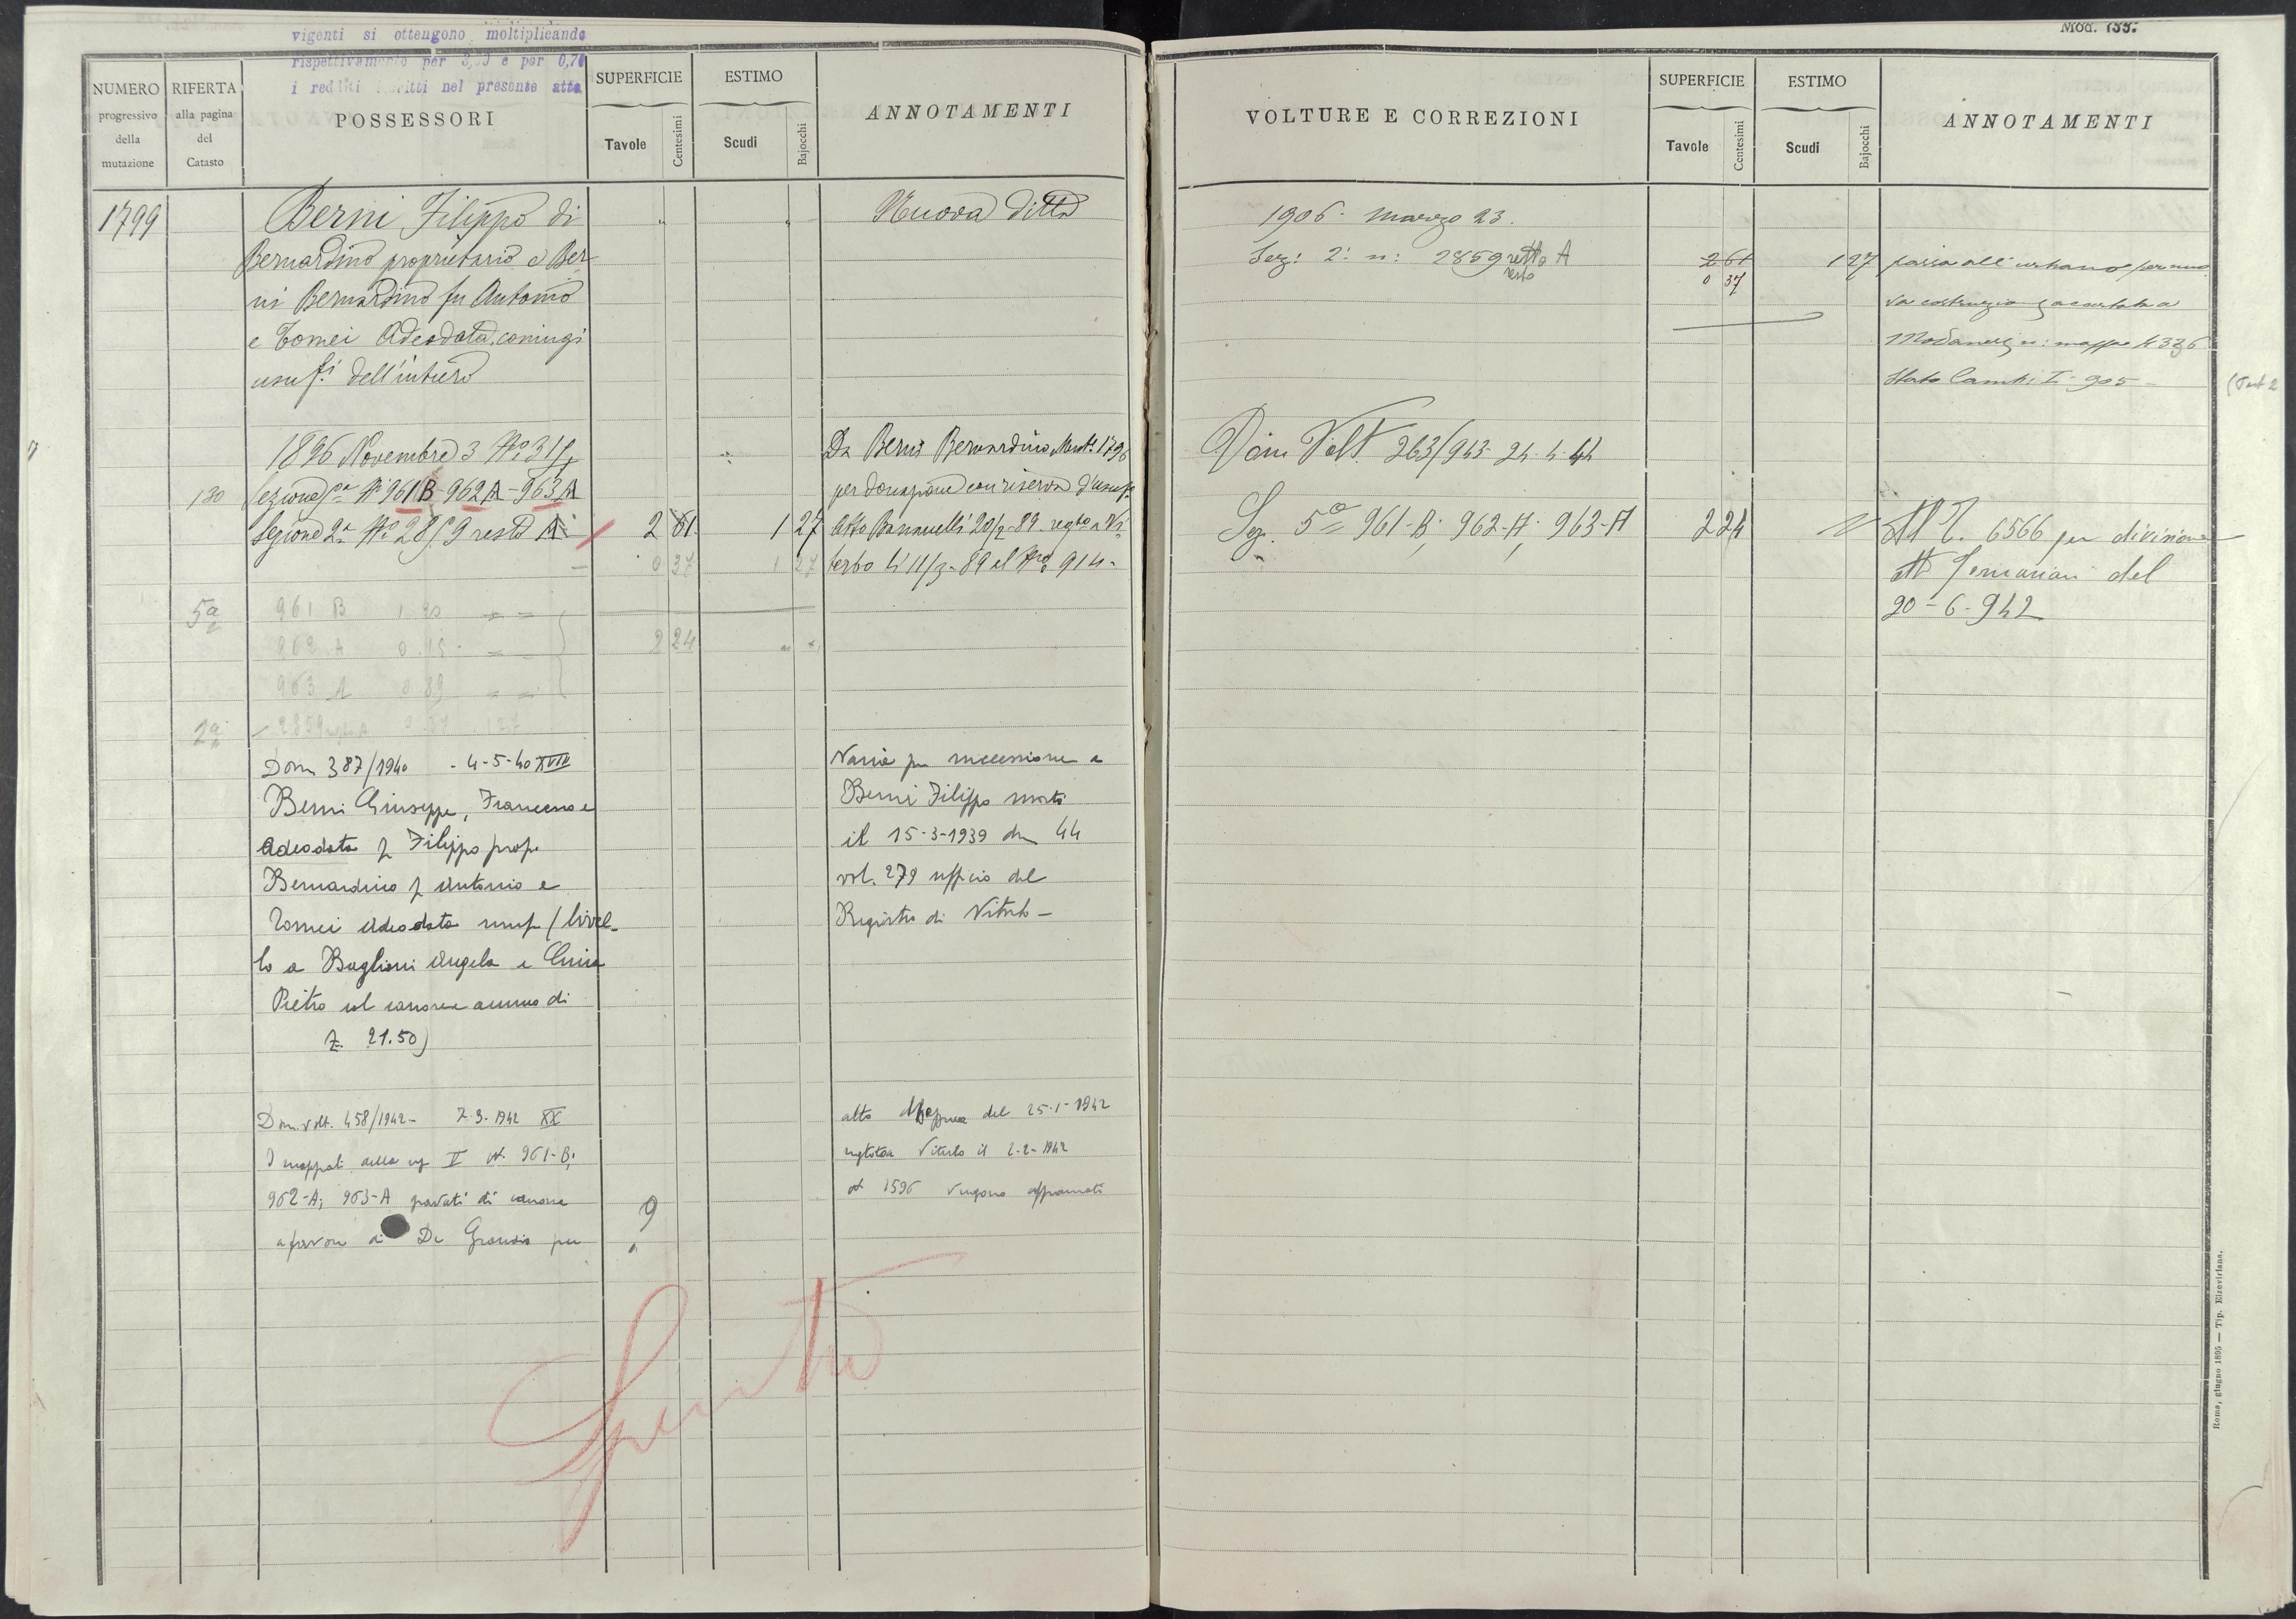 vigenti si ottengono moltiplicando
rispettivamente per e per 0,70
i redditi iscritti nel presente atto
NUMERO
progressivo
della
mutazione
RIFERTA
alla pagina
del
Catasto
POSSESSORI
SUPERFICIE
Tavole
Centesimi
ESTIMO
Scudi
Bajocchi
ANNOTAMENTI
1799
Berni Filippo di
Bernardino proprietario e Ber
ni Bernardino fu Antonio
e Tomei Adeodata coniugi
usuf.i dell'intiero
" "
Nuova ditta
1896 Novembre 3 N.
130 Sezione 5a N. 961 B - 962 A - 963 A
Sezione 2a N. 2859 resto A 2 61 1 27
0 37 1 27
Da Berni Bernardino Mut. 1796
per donazione con riserva d'usuf.
Atto 20/2-89 regto a Vi
terbo li 11/3-89 al N. 914-
5a 961 B 1.20 " "
962 A 0.15 " "
963 A 0.89 " "
2 24
2a 2859 A 0.37 1 27
Dom 387/1940 - 4-5-40 XVIII
Berni Giuseppe, Francesco e
Adeodata f Filippo prop.
Bernardino f Antonio e
Tomei Adeodata usuf (livel-
lo a Baglioni Angela e
Pietro col canone annuo di
£. 21.50)
Varia per successione a
Berni Filippo morto
il 15-3-1939 den 44
vol. 279 ufficio del
Registro di Viterbo -
Dom. volt. 458/1942- 2-3-1942 XX
I mappali della sez V N. 961-B;
962-A; 963-A gravati di canone
a favore di De Grandis per
?
atto del 25-1-1942
Viterbo il 2-2-1942
N 1596 vengono affrancati
Spento
Mod. 133.
VOLTURE E CORREZIONI
SUPERFICIE
Tavole
Centesimi
ESTIMO
Scudi
Bajocchi
ANNOTAMENTI
1906. Marzo 23.
Sez: 2: n: 2859 retto A
resto
2 61 1 27
0 37
passa all'urbano per nuo
va costruzione accertata a
Modanesi n: mappa 4336
Stato Camb: I- 905-
Dom Volt. 263/943- 24-4-44
Sez. 5a 961-B; 962-A; 963-A 2 24
All 6566 per divisione
att del
20-6-942
Roma, giugno 1895 — Tip. Elzeviriana.